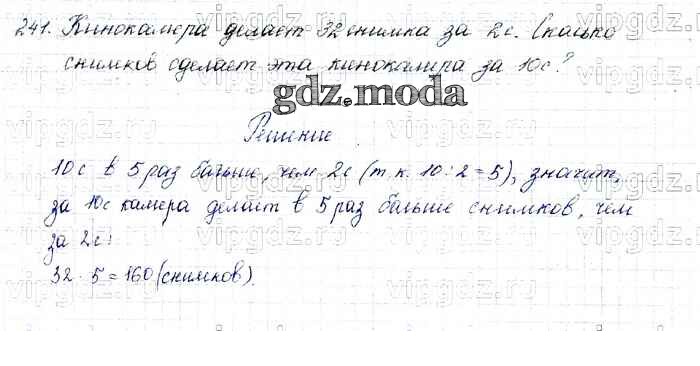 241. Кинокамера делает 32 снимка за 2с. Сколько
снимков сделает эта кинокамера за 10с?
gdz.moda
Решение
10с в 5 раз больше, чем 2с (т.к. 10:2=5), значит,
за 10с камера делает в 5 раз больше снимков, чем
за 2с:
32 · 5 = 160 (снимков).